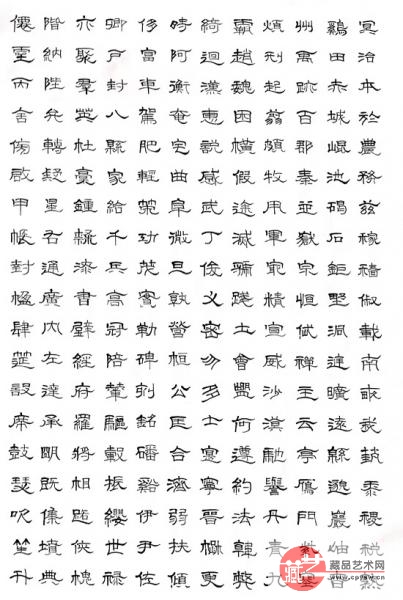 冥治本於農務茲稼穡俶載南畝我藝黍稷稅熟
鷄田赤城崐池碣石鉅野洞庭曠遠緜邈巖岫杳
州禹跡百郡秦並嶽宗恒岱禪主云亭雁門紫塞
煩刑起翦頗牧用軍最精宣威沙漠馳譽丹青九
霸趙魏困橫假途滅虢踐土會盟何遵約法韓弊
綺迴漢惠說感武丁俊乂密勿多士寔寧晉楚更
時阿衡奄宅曲阜微旦孰營桓公匡合濟弱扶傾
侈富車駕肥輕策功茂實勒碑刻銘磻谿伊尹佐
卿戶封八縣家給千兵高冠陪輦驅轂振纓世祿
亦聚羣英杜藁鍾隸漆書壁經府羅將相路俠槐
階納陛弁轉疑星右通廣內左達承明既集墳典
僊靈丙舍傍啟甲帳對楹肆筵設席鼓瑟吹笙升
藏品艺术网